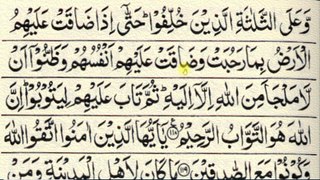 وَعَلَى الثَّلٰثَةِ الَّذِيْنَ خُلِّفُوْا ؕ حَتّٰۤى اِذَا ضَاقَتْ عَلَيْهِمُ
الْاَرْضُ بِمَا رَحُبَتْ وَضَاقَتْ عَلَيْهِمْ اَنْفُسُهُمْ وَظَنُّوْۤا اَنْ
لَّا مَلْجَاَ مِنَ اللّٰهِ اِلَّاۤ اِلَيْهِ ؕ ثُمَّ تَابَ عَلَيْهِمْ لِيَتُوْبُوْا ؕ اِنَّ
اللّٰهَ هُوَ التَّوَّابُ الرَّحِيْمُ ﴿۱۱۸﴾ يٰۤاَيُّهَا الَّذِيْنَ اٰمَنُوا اتَّقُوا اللّٰهَ
وَكُوْنُوْا مَعَ الصّٰدِقِيْنَ ﴿۱۱۹﴾ مَا كَانَ لِاَهْلِ الْمَدِيْنَةِ وَمَنْ